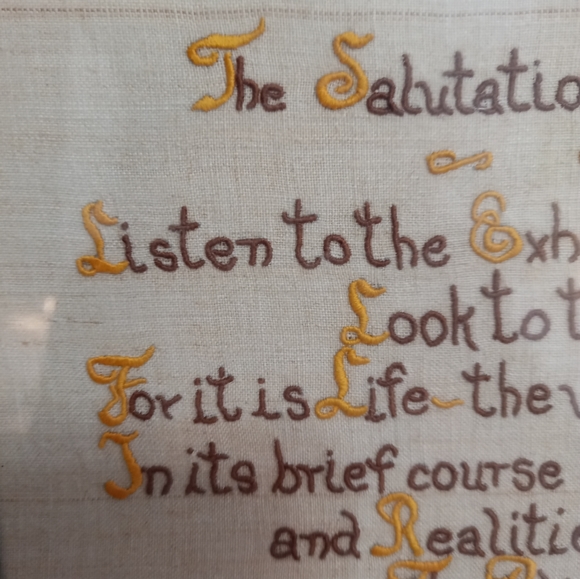 The Salutatio
Listen to the Exh
Look to t
For it is Life~the
In its brief course
and Realitie